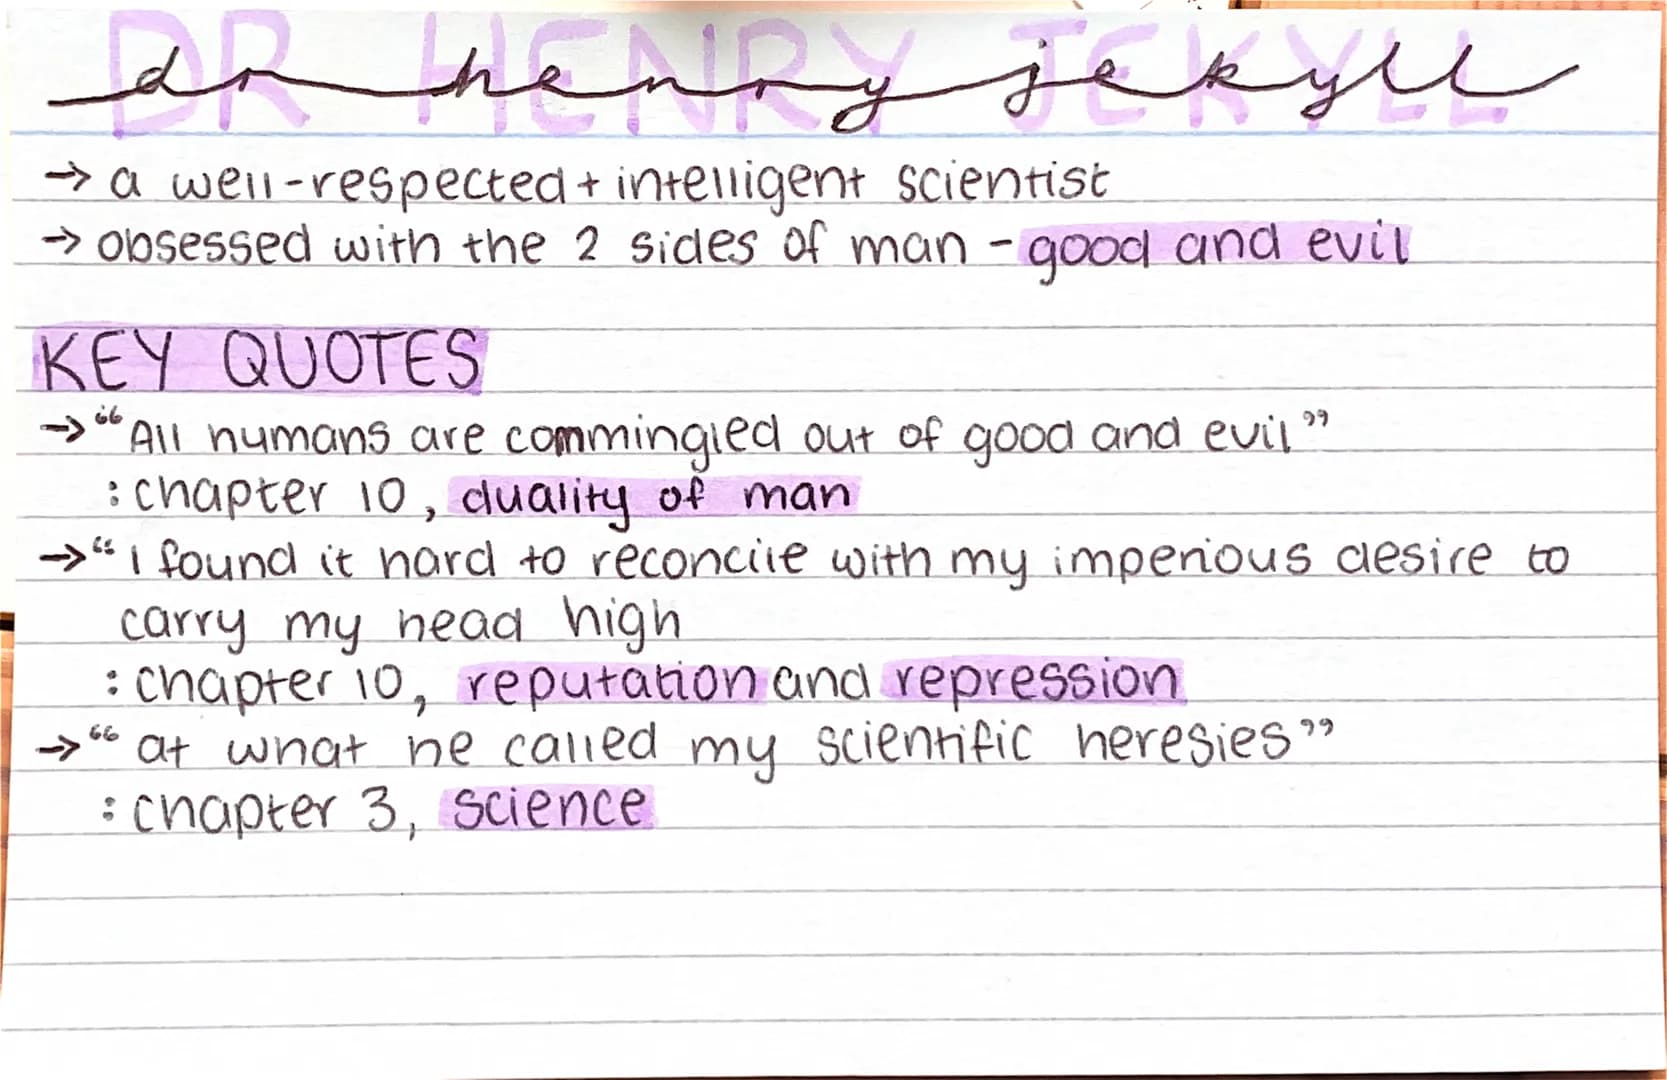 DR HENRY JEKYLL
dr henry jekyll
→ a well-respected + intelligent scientist
→ obsessed with the 2 sides of man - good and evil
KEY QUOTES
→ “All humans are commingled out of good and evil”
: chapter 10, duality of man
→ “I found it hard to reconcile with my imperious desire to
carry my head high
: chapter 10, reputation and repression
→ “at what he called my scientific heresies”
: chapter 3, science